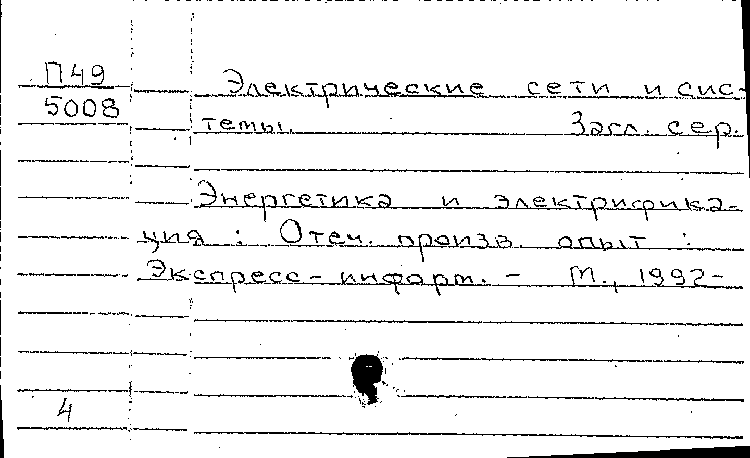 П49
5008
Электрические сети и сис-
темы. Загл. сер.
Энергетика и электрифика-
ция : Отеч. произв. опыт :
Экспресс-информ. - М., 1992-
4